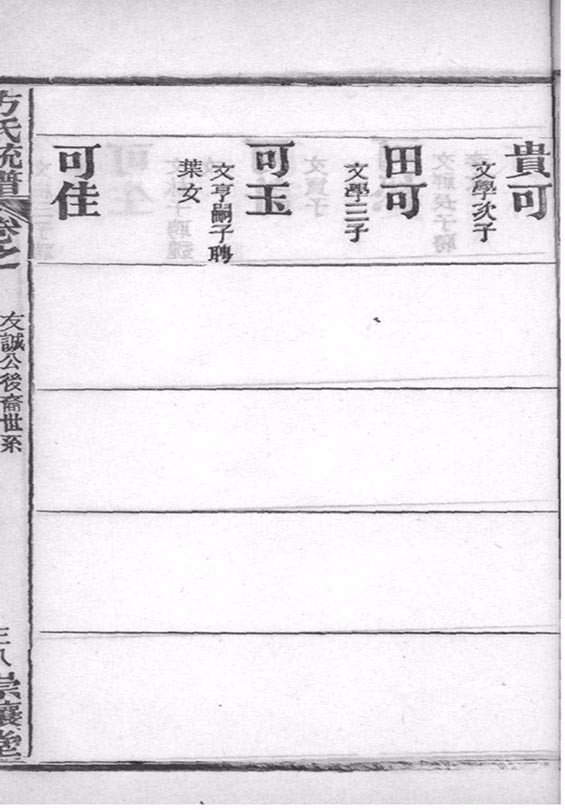 貴可
文學次子
田可
文學三子
可玉
文亨嗣子聘
葉女
可佳
方氏統譜 卷之一
友誠公後裔世系
三八
崇讓堂